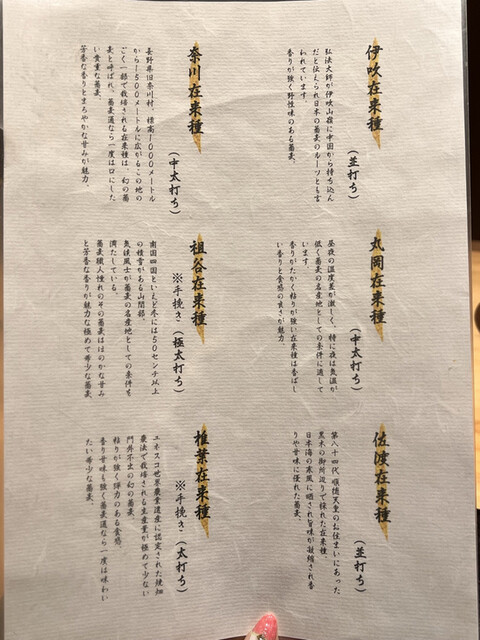 伊吹在来種
（並打ち）
弘法大師が伊吹山嶺に中国から持ち込ん
だと伝えられ日本の蕎麦のルーツとも言
われています。
香りが強く野性味のある蕎麦。
奈川在来種
（中太打ち）
長野県旧奈川村、標高1000メートル
から1500メートルに広がるこの地の
ごく一部で栽培される在来種は、幻の蕎
麦と呼ばれ、蕎麦通なら一度は口にした
い貴重な蕎麦。
芳香な香りとまろやかな甘みが魅力。
丸岡在来種
（中太打ち）
昼夜の温度差が激しく、特に夜は気温が
低く蕎麦の名産地としての条件に適して
います。
香りがたかく粘りが強い在来種は香ばし
い香りと食感の良さが魅力
祖谷在来種
※手挽き（極太打ち）
南国四国といえど冬には50センチ以上
の積雪がある山間部。
気候風土が蕎麦の名産地としての条件を
満たしている。
蕎麦職人憧れのその蕎麦はほのかな甘み
と芳香な香りが魅力な極めて希少な蕎麦。
佐渡在来種
（並打ち）
第八十四代 順徳天皇のお住まいにあった
黒木の御所辺りで採れた在来種。
日本海の寒風に晒され旨味が凝縮され香
りや甘味に優れた蕎麦。
椎葉在来種
※手挽き（太打ち）
ユネスコ世界農業遺産に認定された焼畑
農法で栽培される生産量が極めて少ない
門外不出の幻の蕎麦。
粘りが強く弾力のある食感、
香り甘味も強く蕎麦通なら一度は味わい
たい希少な蕎麦。